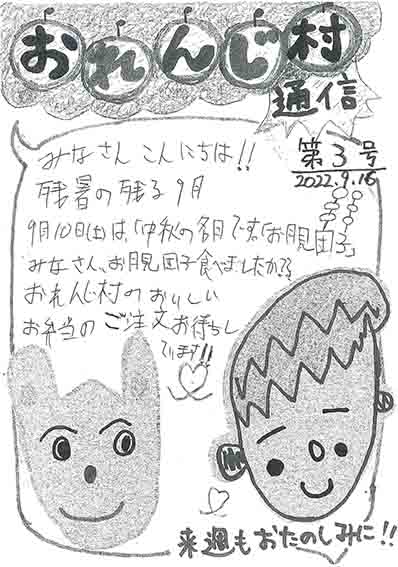 おれんじ村
通信
第3号
2022.9.16
みなさん こんにちは!!
残暑の残る9月
9月10日(土)は、「中秋の名月」です。「お月見団子」
みなさん、お月見団子食べましたか??
おれんじ村のおいしい
お弁当のご注文お待ちし
ています!!
来週もおたのしみに!!